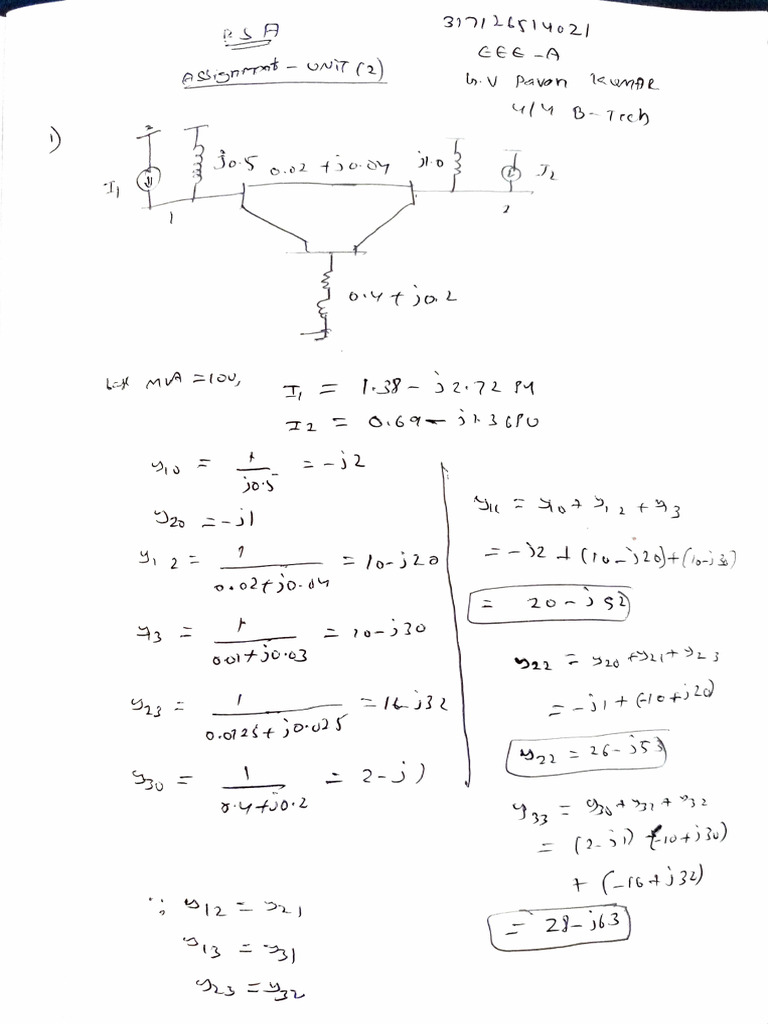 PSA
Assignment - UNIT (2)
317126514021
EEE-A
G.V Pavan Kumar
4/4 B-Tech
1)
I1
j0.5
0.02 + j0.04
j1.0
I2
1
2
0.4 + j0.2
MVA = 100,
I1 = 1.38 - j2.72 PU
I2 = 0.69 - j1.36 PU
y10 = 1/j0.5 = -j2
y20 = -j1
y12 = 1/0.02+j0.04 = 10-j20
y3 = 1/0.01+j0.03 = 10-j30
y23 = 1/0.0125+j0.025 = 16-j32
y30 = 1/0.4+j0.2 = 2-j)
∵ y12 = y21
y13 = y31
y23 = y32
y11 = y10 + y12 + y3
= -j2 + (10-j20)+(10-j30)
= 20-j52
y22 = y20+y21+y23
= -j1 + (-10+j20)
y22 = 26-j53
y33 = y30+y31+y32
= (2-j1) (-10+j30)
+ (-16+j32)
= 28-j63